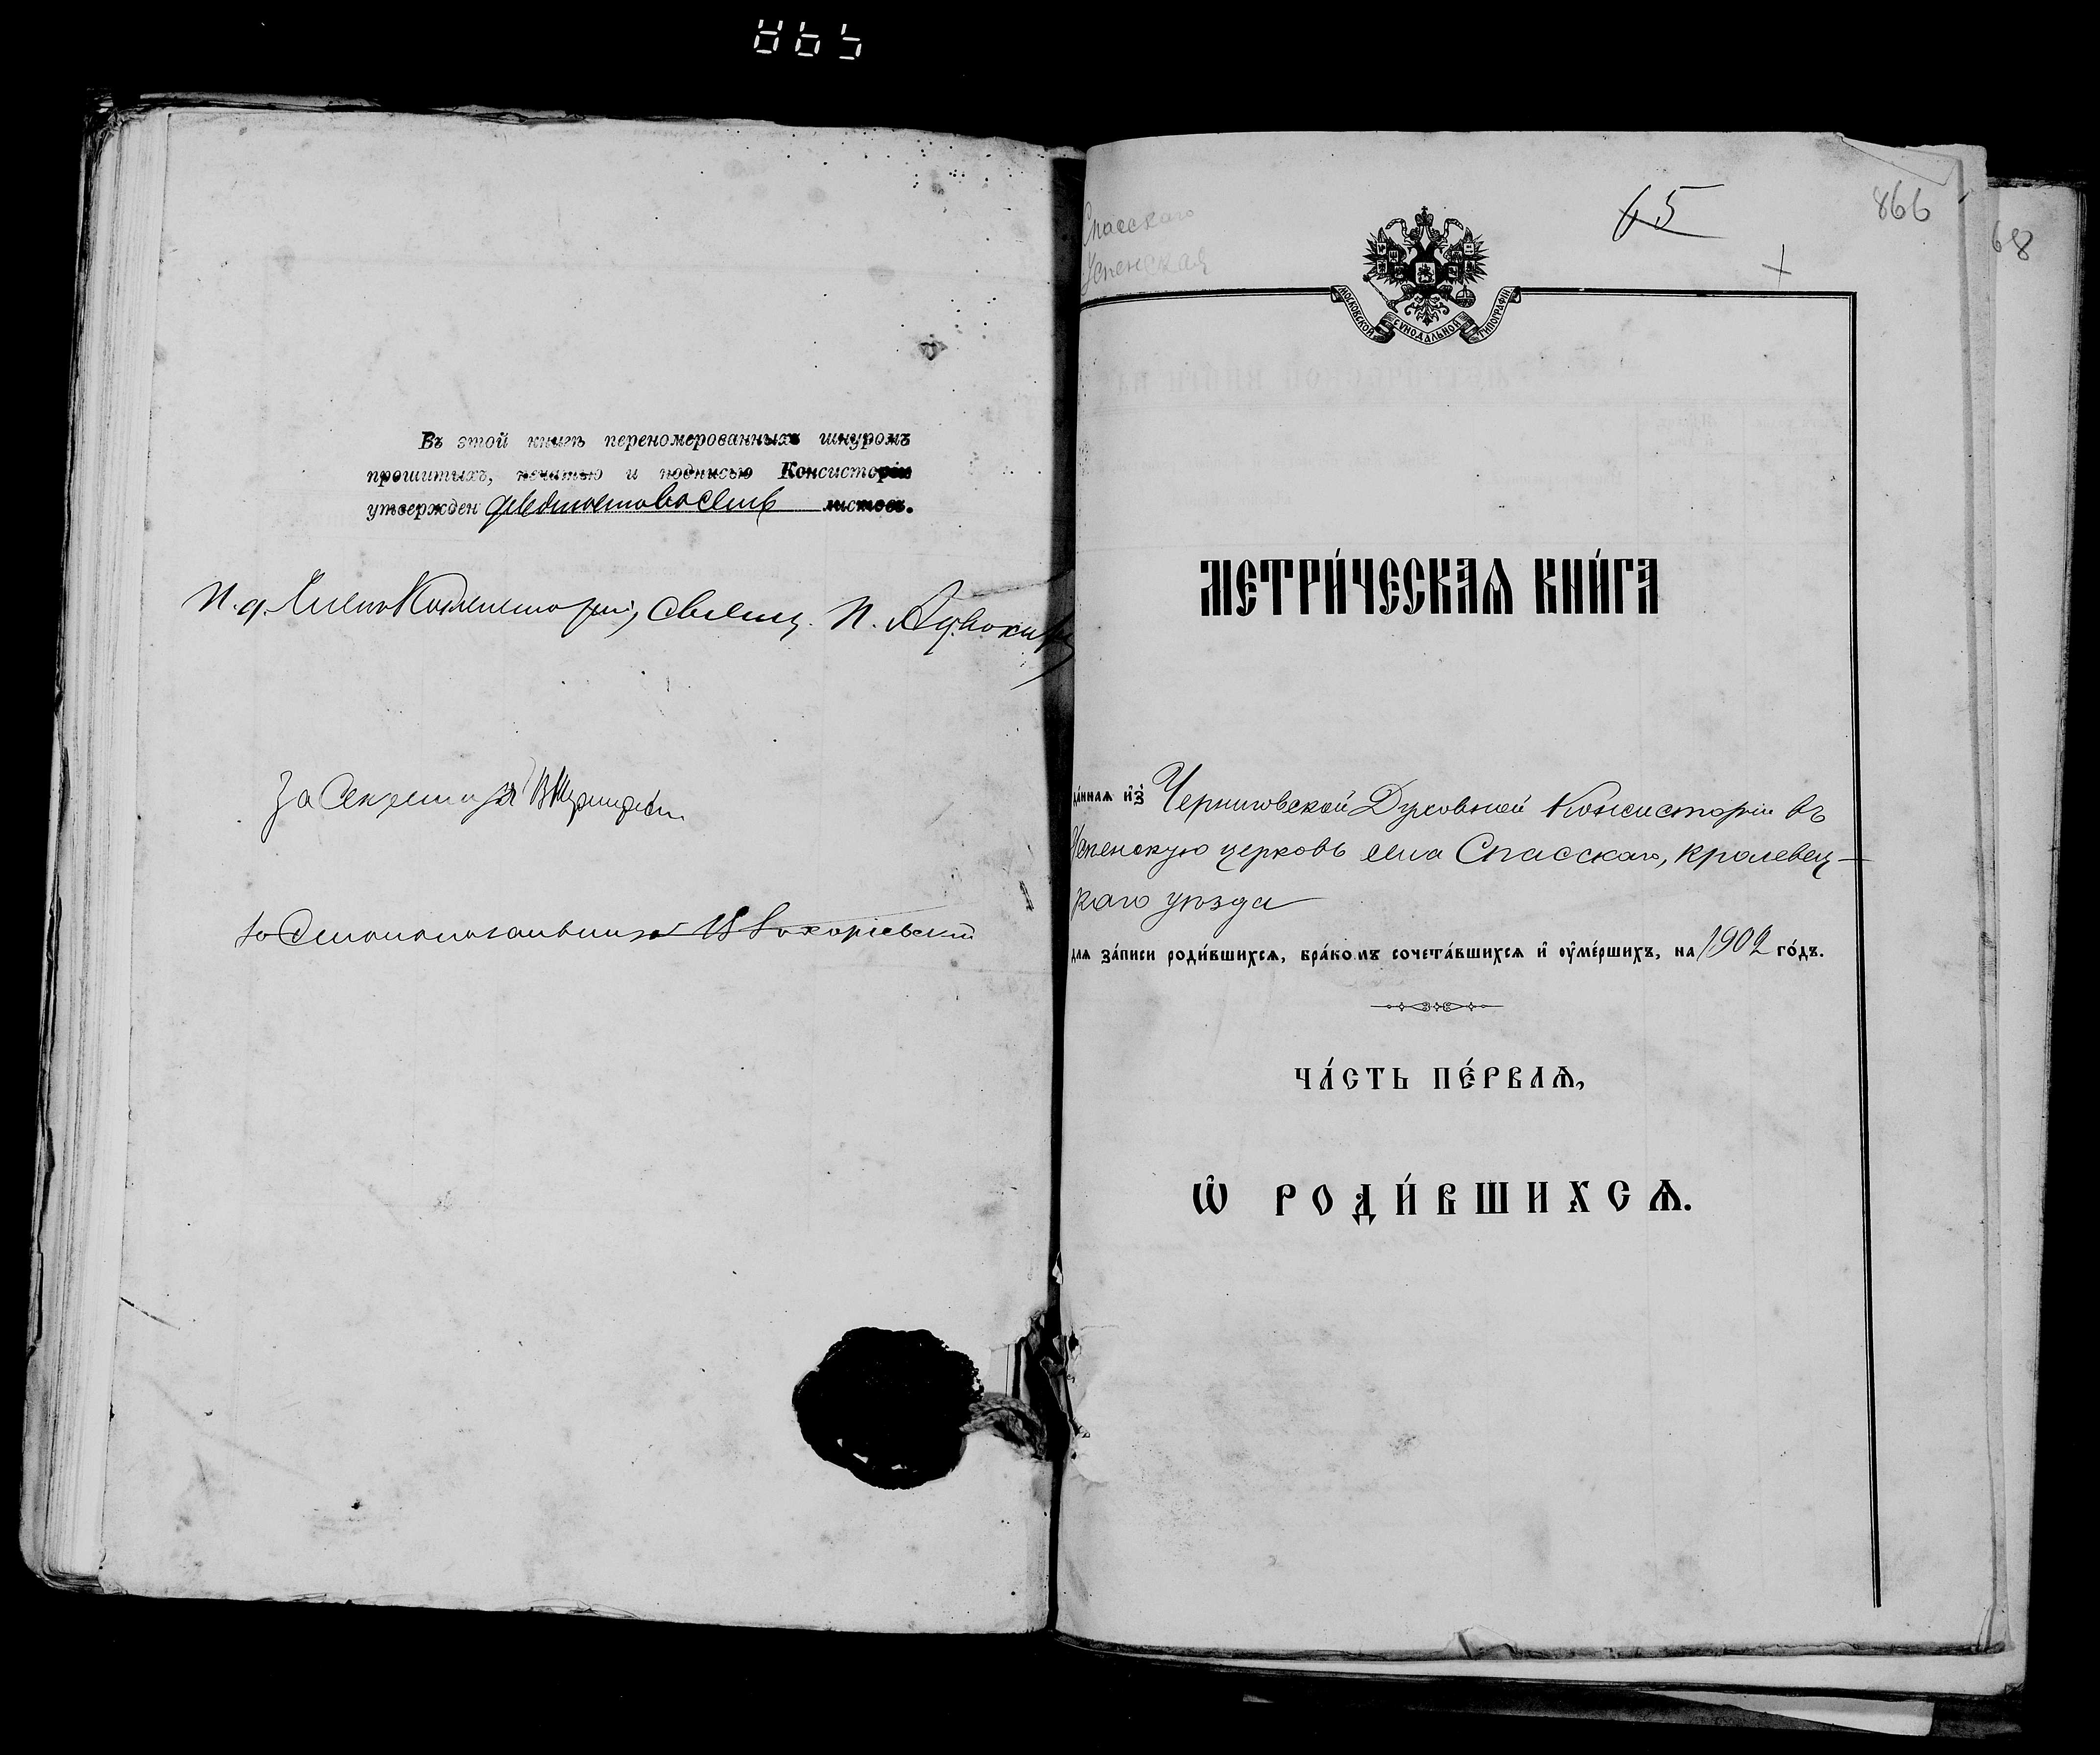 Въ этой книгѣ переномерованныхъ шнуромъ
прошитыхъ, печатью и подписью Консисторіи
утвержден девяностовосемь листов.
И. д. Члена Консисторіи, Священ. П.
За Секретаря
Столоначальник
Спасскаго
Успенская
65
866
68
МОСКОВСКОЙ СѴНОДАЛЬНОЙ ТИПОГРАФІИ
МЕТРИ́ЧЕСКАѦ КНИ́ГА
да́ннаѧ и҆з̾ Черниговской Духовной Консисторіи въ
Успенскую церковь села Спасскаго, Кролевец-
каго уѣзда
для за́писи роди́вшихсѧ, бра́комъ сочета́вшихсѧ и҆ ѹ҆ме́ршихъ, на 1902 го́дъ.
ЧА́СТЬ ПЕ́РВАѦ,
Ѡ҆ РОДИ́ВШИХСѦ.